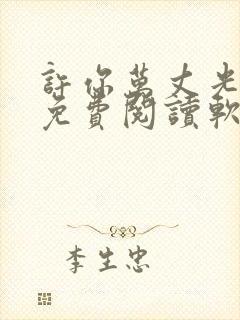 許你萬丈光
免費閱讀軟
李生忠